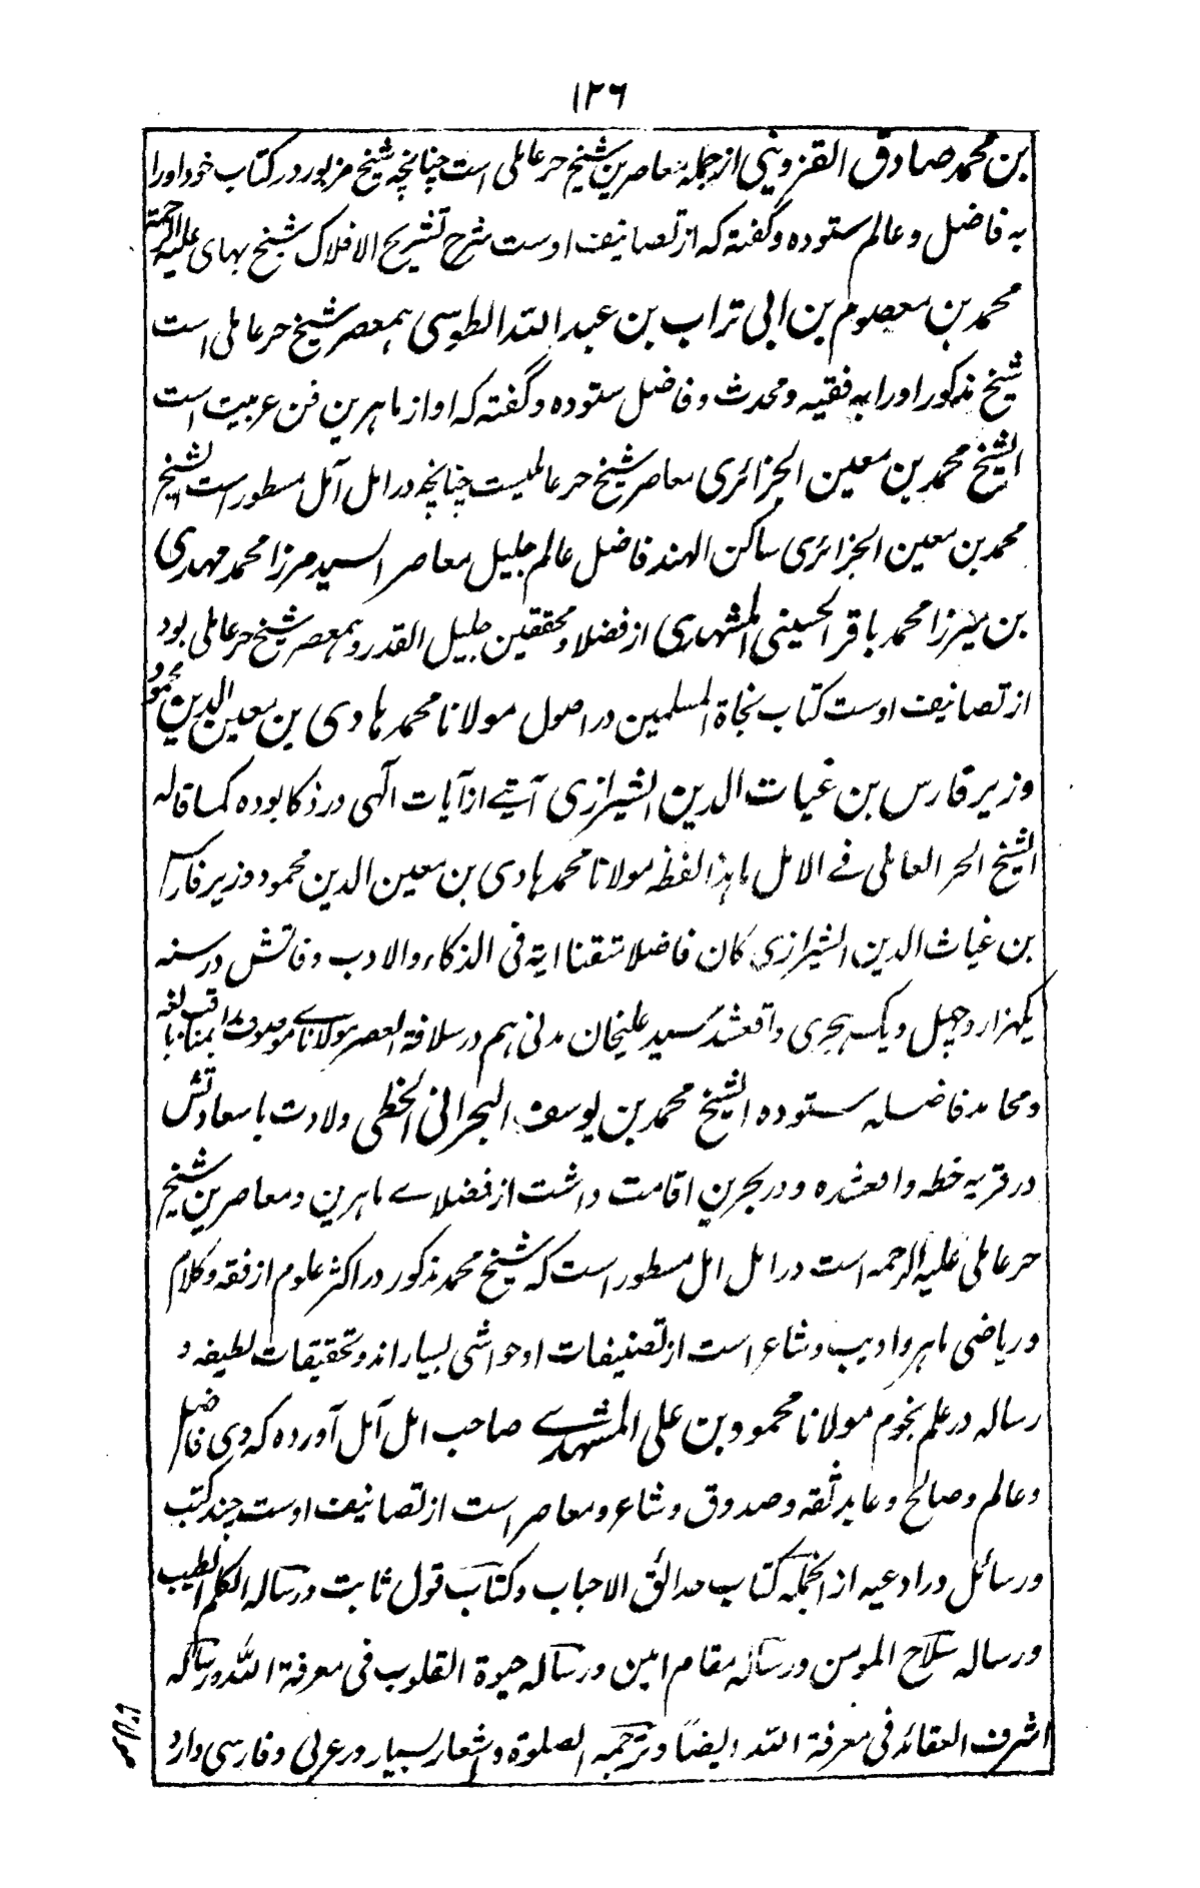 ۱۲۶
بن محمد صادق القزوینی از جمله معاصرین شیخ حر عاملی است چنانچه شیخ مزبور در کتاب خود او را
به فاضل و عالم ستوده و گفته که از تصانیف اوست شرح تشریح الافلاک شیخ بهای علیه الرحمة
محمد بن معصوم بن ابی تراب بن عبد الله الطوسی همعصر شیخ حر عاملی است
شیخ مذکور او را به فقیه و محدث و فاضل ستوده و گفته که او از ماهرین فن عربیت است
الشیخ محمد بن معین الجزائری معاصر شیخ حر عاملیست چنانچه در امل آمل مسطور است الشیخ
محمد بن معین الجزائری ساکن الهند فاضل عالم جلیل معاصر السید مرزا محمد مهدی
بن میرزا محمد باقر الحسینی المشهدی از فضلا و محققین جلیل القدر و همعصر شیخ حر عاملی بود
از تصانیف اوست کتاب نجاة المسلمین در اصول مولانا محمد هادی بن معین الدین محمود
وزیر فارس بن غیاث الدین الشیرازی آیتے از آیات الٓهی در ذکا بوده کما قاله
الشیخ الحر العاملی فے الامل ما هذا لفظه مولانا محمد هادی بن معین الدین محمود وزیر فارس
بن غیاث الدین الشیرازی کان فاضلا متقنا ایة فی الذکاء والادب وفاتش در سنه
یکهزار و چهل و یک هجری واقعشد سید علیخان مدنی هم در سلافة العصر مولاناے موصوف را بمناقب بالغه
و محامد فاضله ستوده الشیخ محمد بن یوسف البحرانی الخطی ولادت با سعادتش
در قریه خطه واقعشده و در بحرین اقامت داشت از فضلاے ماهرین و معاصرین شیخ
حر عاملی علیه الرحمه است در امل امل مسطور است که شیخ محمد مذکور در اکثر علوم از فقه و کلام
و ریاضی ماهر و ادیب و شاعر است از تصنیفات او حواشی بسیار اند و تحقیقات لطیفه و
رساله در علم نجوم مولانا محمود بن علی المشهدے صاحب امل آمل آورده که وی فاضل
و عالم و صالح و عابد ثقه و صدوق و شاعر و معاصر است از تصانیف اوست چند کتب
و رسائل در ادعیه از انجمله کتاب حدائق الاحباب و کتاب قول ثابت و رساله الکلم الطیب
و رساله سلاح المومن و رساله مقام امین و رساله حیوة القلوب فی معرفة الله و رساله
اشرف العقائد فی معرفة الله ایضًا و ترجمه الصلوة و اشعار بسیار در عربی و فارسی دارد